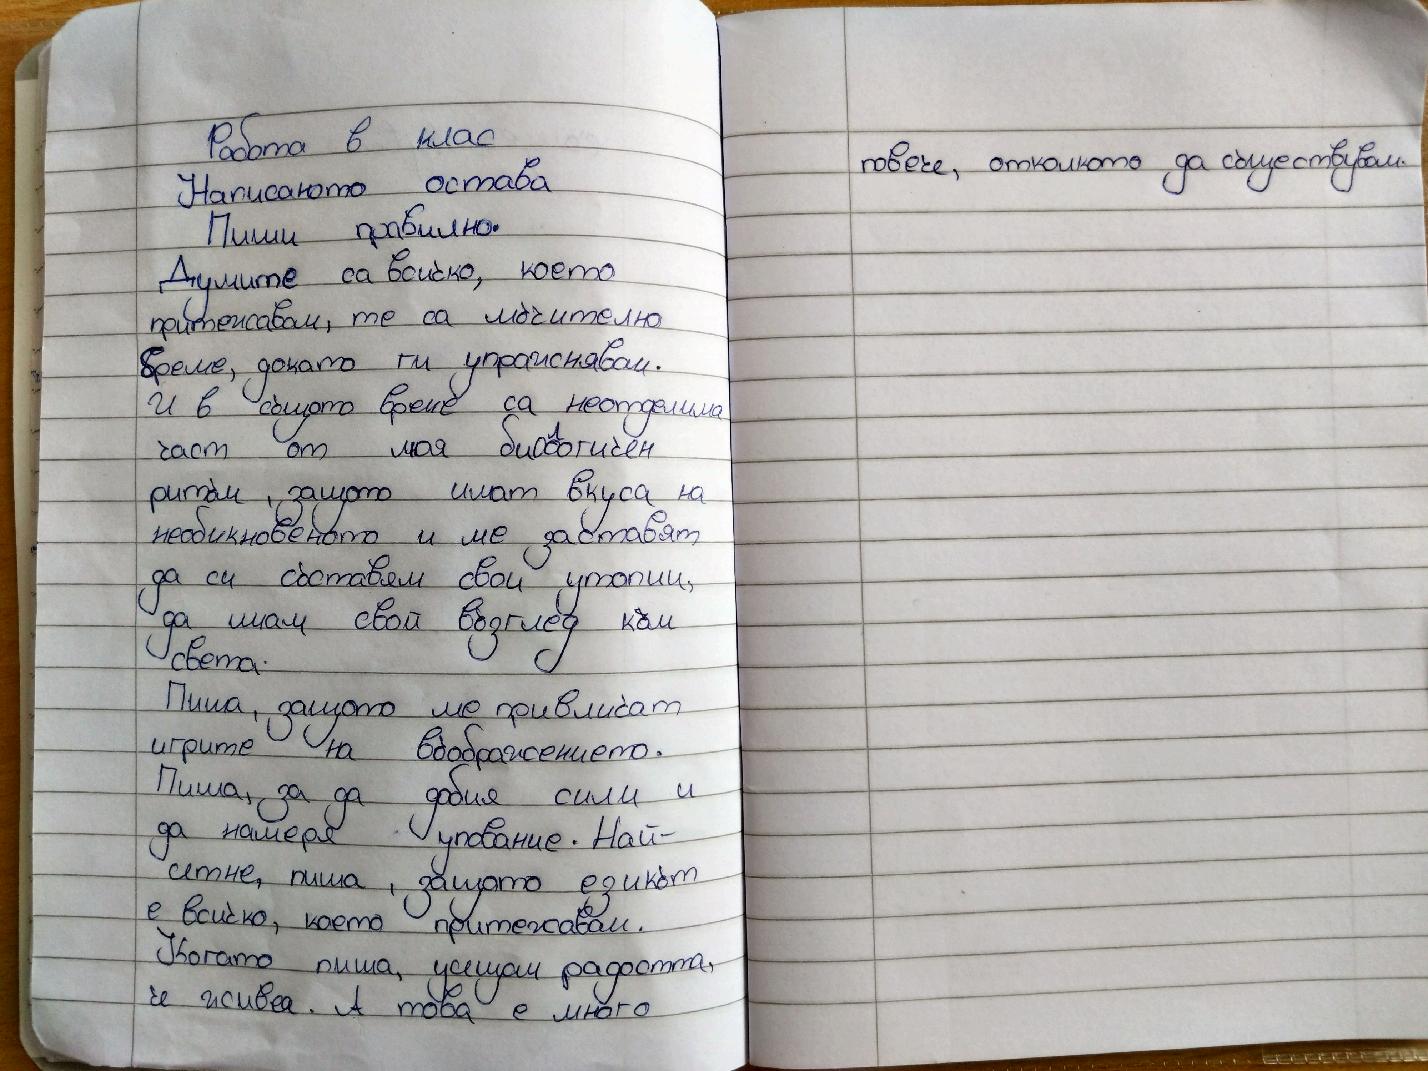 Работа в клас
Написаното остава
Пиши правилно.
Думите са всичко, което
притежавам, те са мъчително
време, докато ги упражнявам.
И в същото време са неотделима
част от моя биологичен
ритъм, защото имат вкуса на
необикновеното и ме заставят
да си съставям свои утопии,
да имам свой възглед към
света.
Пиша, защото ме привличат
игрите на въображението.
Пиша, за да добия сили и
да намеря упование. Най-
сетне, пиша, защото езикът
е всичко, което притежавам.
Когато пиша, усещам радостта,
че живея. А това е много
повече, отколкото да съществувам.